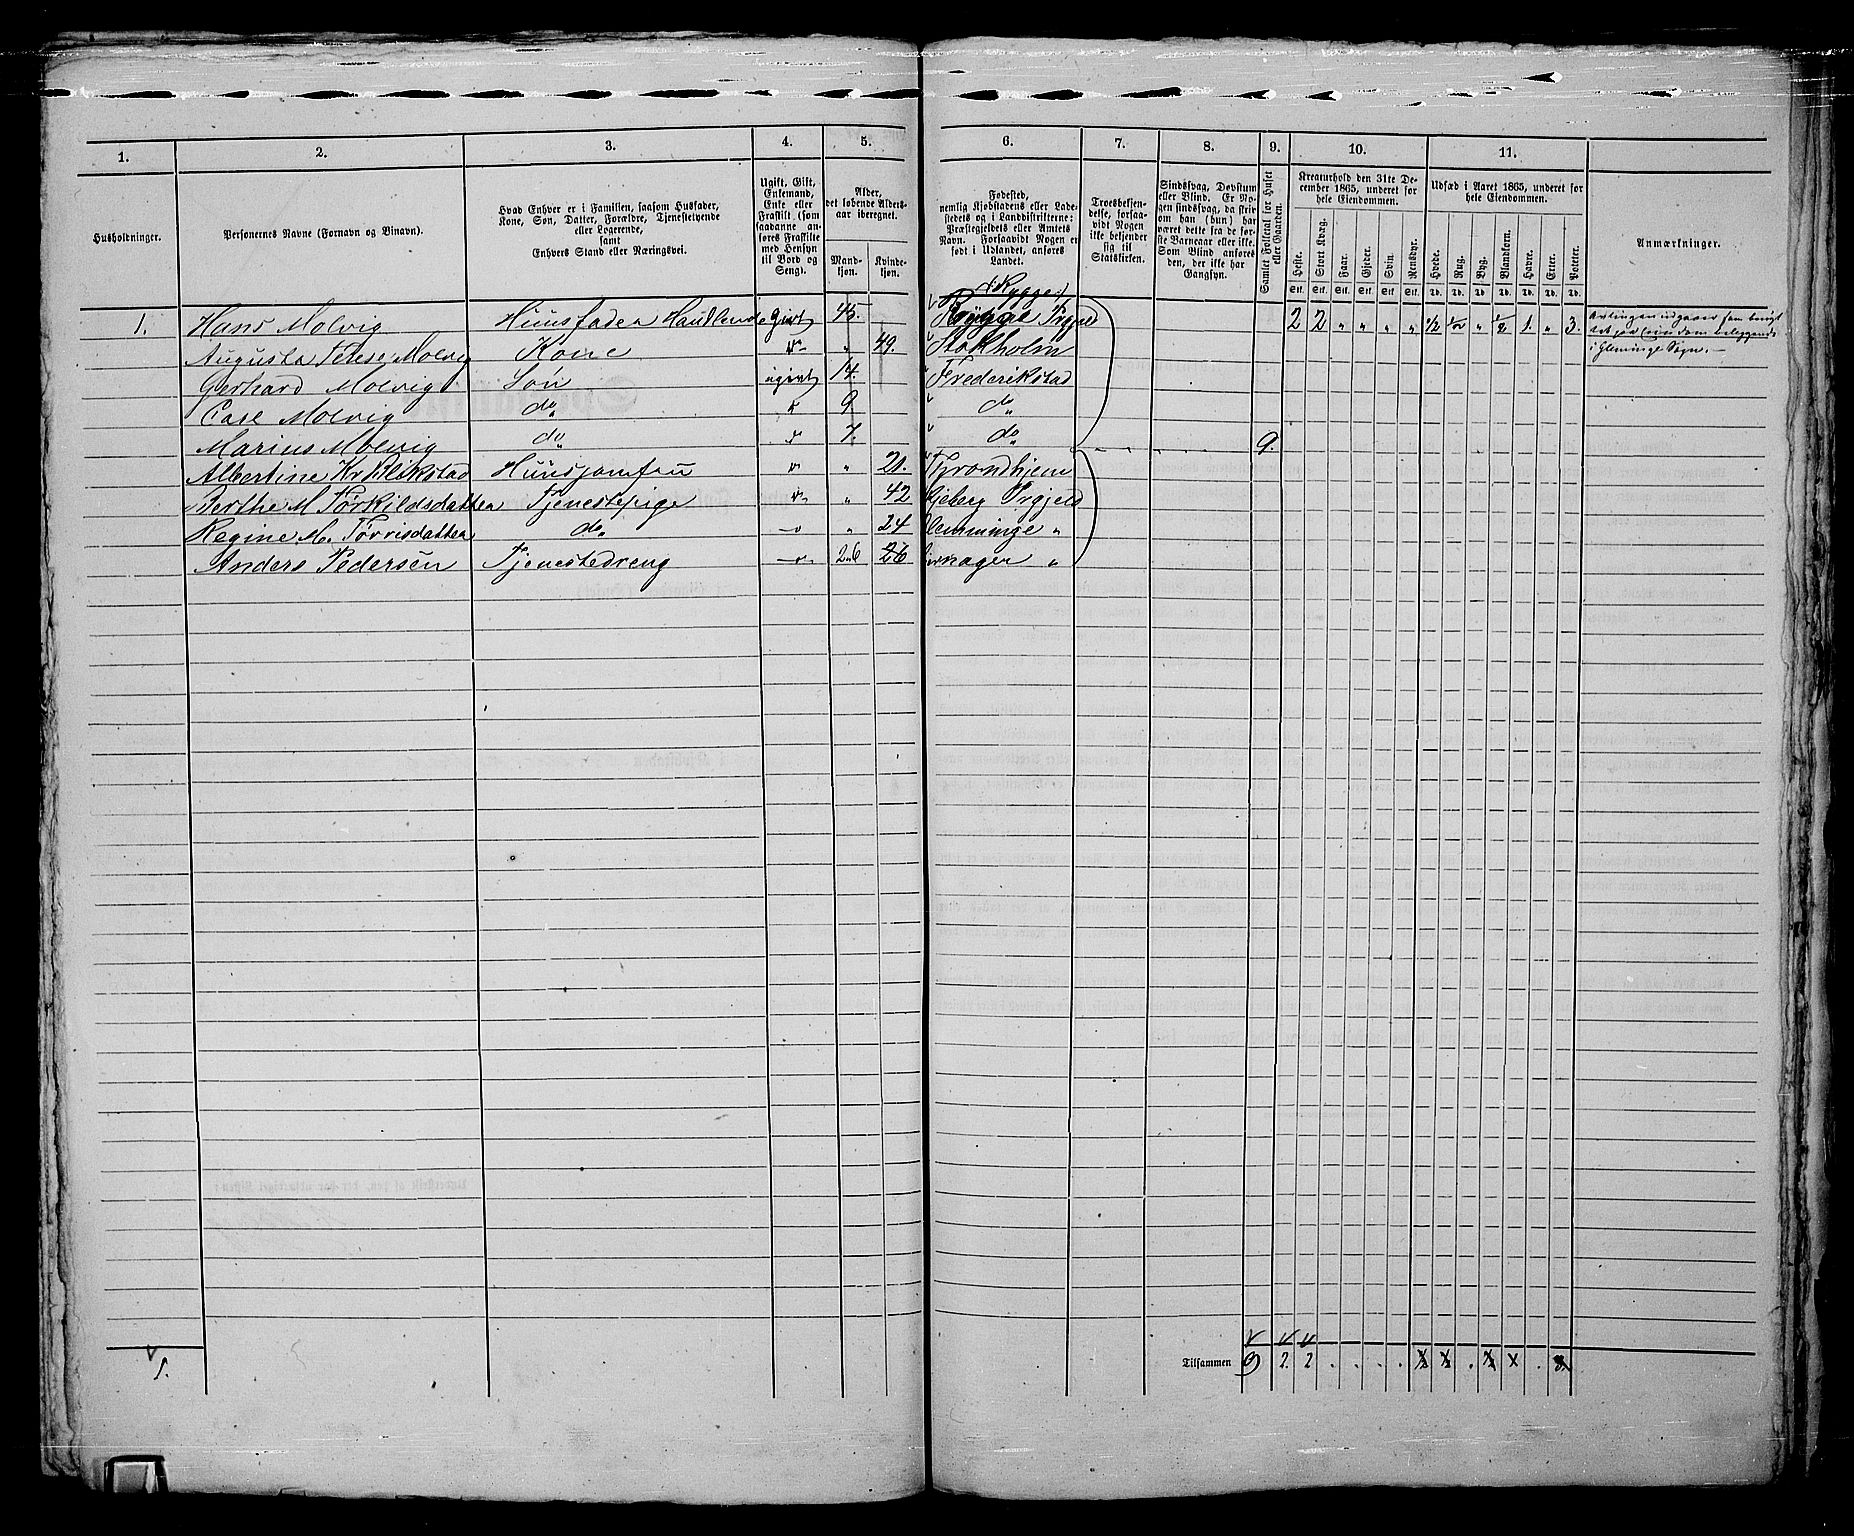 1. 2. 3. 4. 5. 6. 7. 8. 9. 10. 11.
Husholdninger.
Personernes Navne (Fornavn og Tilnavn).
Hvad Enhver er i Familien, saasom Husfader,
Kone, Søn, Datter, Forældre, Tjenestetyende
eller Logerende,
samt
Enhvers Stand eller Næringsvei.
Ugift, Gift,
Enkemand,
Enke eller
Fraskilt, (som
saadanne an-
føres Fraskilte
med Hensyn
til Bord og
Seng).
Alder,
det løbende Alders-
aar iberegnet.
Mand-
kjøn.
Kvinde-
kjøn.
Fødested,
nemlig Kjøbstadens eller Lade-
stedets og i Landdistrikterne:
Præstegjeldets eller Amtets
Navn. Forsaavidt Nogen er
født i Udlandet, anføres
Landet.
Troesbekjen-
delse, forsaa-
vidt Nogen
ikke bekjender
sig til
Statskirken.
Sindssvag, Døvstum
eller Blind. Er No-
gen sindssvag, da skriv
om han (hun) har
været dette fra de før-
ste Barneaar eller ikke.
Som Blind anføres
den, der ikke har
Gangsyn.
Samlet Folketal for Huset
eller Gaarden.
Kreaturhold den 31te De-
cember 1865, underet for
hele Eiendommen.
Heste. Stort Kvæg. Faar. Gjeder. Svin. Rensdyr.
Stk. Stk. Stk. Stk. Stk. Stk.
Udsæd i Aaret 1865, underet for
hele Eiendommen.
Hvede. Rug. Byg. Blandkorn. Havre. Erter. Poteter.
Td. Td. Td. Td. Td. Td. Td.
Anmærkninger.
(Rygge)
1. Hans Molvig Huusfader Handlende Givt 45. Rygge Prgjeld 2 2 „ „ „ „ 1/2 1/2 „ 1/2 1. „ 3.
Augusta Terese Molvig Kone „ 49. Stokholm
i Glemminge Sogn.
Gerhard Molvig Søn ugivt 14. Frederikstad
Carl Molvig do 9 do
Marius Molvig do 7. do 9.
Albertine Kr Klikstad Huusjomfru „ 21. Trondhjem
Berthe M Tørkildsdatter Tjenestepige „ 42 Skjeberg Prgjeld
Regine M. Tørrisdatter do „ 24 Glemminge „
Anders Pedersen Tjenestedreng 26 26 „
1.
Tilsammen 9 2. 2 . . . .